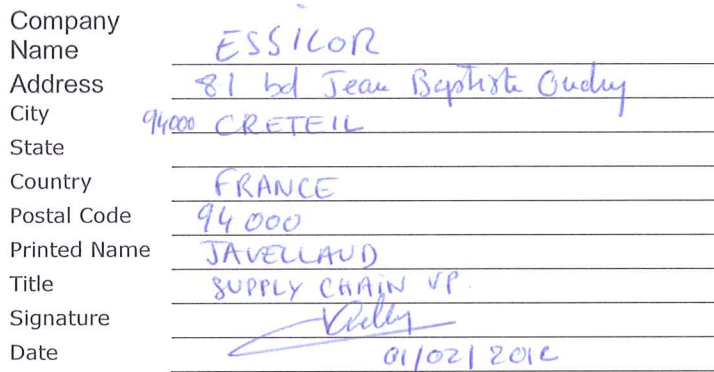 Company
Name ESSILOR
Address 81 bd Jean Baptiste Oudry
City 94000 CRETEIL
State
Country FRANCE
Postal Code 94000
Printed Name JAVELLAUD
Title SUPPLY CHAIN VP.
Signature
Date 01/02/2012